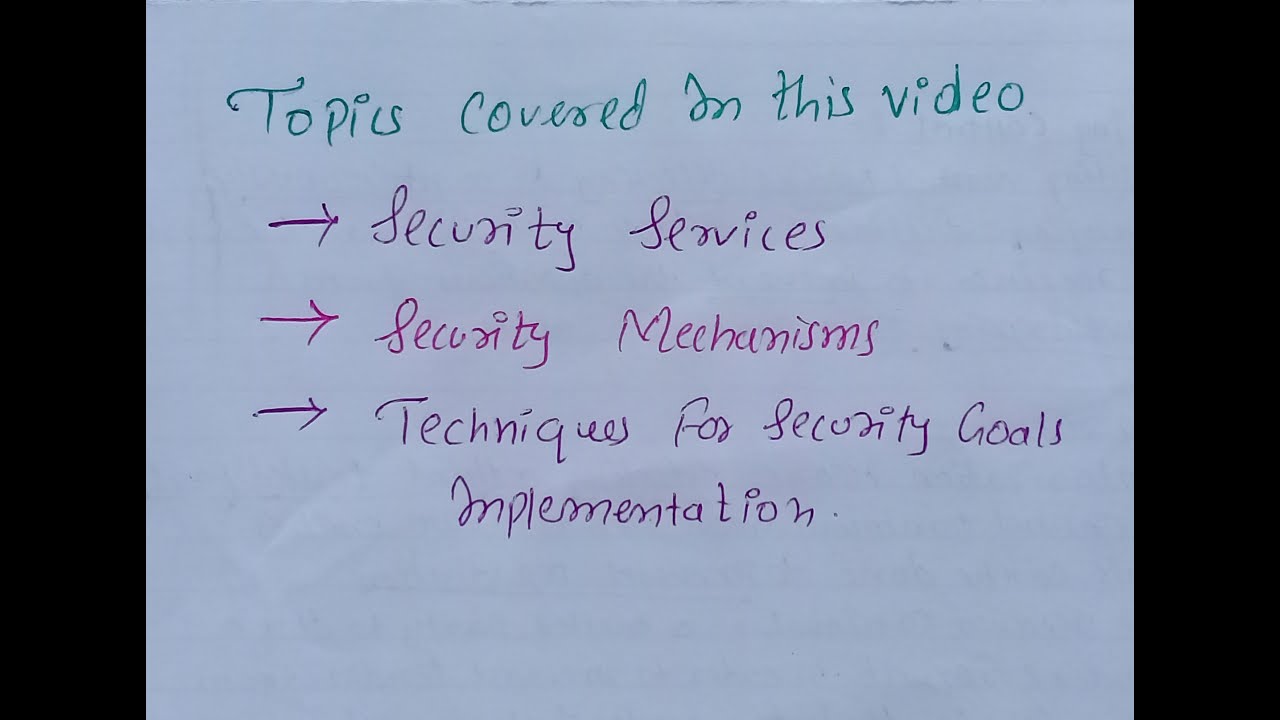 Topics Covered In this video
→ Security Services
→ Security Mechanisms
→ Techniques For Security Goals
Implementation.